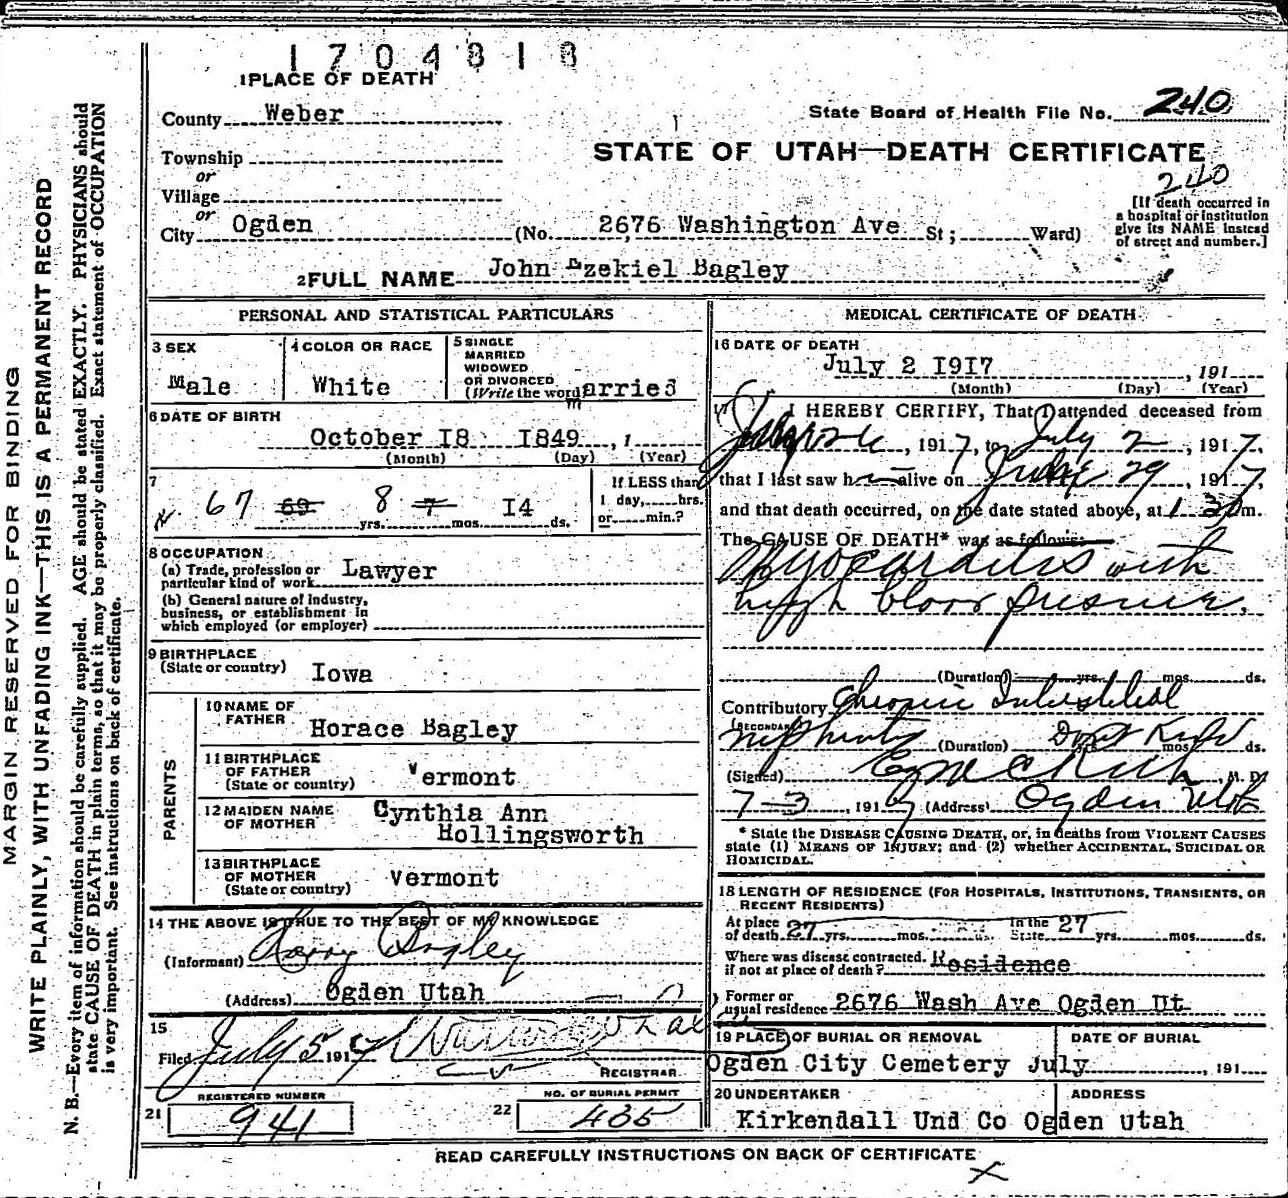 1704818
1 PLACE OF DEATH
County Weber
State Board of Health File No. 240
Township
or
STATE OF UTAH—DEATH CERTIFICATE
240
Village
or
City Ogden (No. 2676 Washington Ave St; Ward)
[If death occurred in
a hospital or institution
give its NAME instead
of street and number.]
2 FULL NAME John Ezekiel Bagley
PERSONAL AND STATISTICAL PARTICULARS
3 SEX
Male
4 COLOR OR RACE
White
5 SINGLE
MARRIED
WIDOWED
OR DIVORCED
(Write the word) married
6 DATE OF BIRTH
October 18 1849, 1
(Month) (Day) (Year)
7
67 69 yrs. 8 7 mos. 14 ds.
If LESS than
1 day, hrs.
or min.?
8 OCCUPATION
(a) Trade, profession or
particular kind of work Lawyer
(b) General nature of industry,
business, or establishment in
which employed (or employer)
9 BIRTHPLACE
(State or country) Iowa
PARENTS
10 NAME OF
FATHER Horace Bagley
11 BIRTHPLACE
OF FATHER
(State or country) Vermont
12 MAIDEN NAME
OF MOTHER Cynthia Ann
Hollingsworth
13 BIRTHPLACE
OF MOTHER
(State or country) Vermont
14 THE ABOVE IS TRUE TO THE BEST OF MY KNOWLEDGE
(Informant) Harry Bagley
(Address) Ogden Utah
15
Filed July 5 1917
REGISTRAR
REGISTERED NUMBER
21 941
NO. OF BURIAL PERMIT
22 435
MEDICAL CERTIFICATE OF DEATH
16 DATE OF DEATH
July 2 1917, 191
(Month) (Day) (Year)
17 I HEREBY CERTIFY, That I attended deceased from
, 1917, to July 2, 1917,
that I last saw h alive on June 29, 1917,
and that death occurred, on the date stated above, at 1.30 m.
The CAUSE OF DEATH* was as follows:
Myocarditis with
high blood pressure.
(Duration) yrs. mos. ds.
Contributory Chronic Interstitial
(SECONDARY)
nephritis (Duration) Don't Know mos. ds.
(Signed) M. D.
7-3, 1917 (Address) Ogden Utah
* State the DISEASE CAUSING DEATH, or, in deaths from VIOLENT CAUSES
state (1) MEANS OF INJURY; and (2) whether ACCIDENTAL, SUICIDAL OR
HOMICIDAL.
18 LENGTH OF RESIDENCE (FOR HOSPITALS, INSTITUTIONS, TRANSIENTS, OR
RECENT RESIDENTS)
At place
of death 27 yrs. mos. ds. In the
State 27 yrs. mos. ds.
Where was disease contracted,
if not at place of death? Residence
Former or
usual residence 2676 Wash Ave Ogden Ut
19 PLACE OF BURIAL OR REMOVAL
Ogden City Cemetery
DATE OF BURIAL
July, 191
20 UNDERTAKER
Kirkendall Und Co
ADDRESS
Ogden Utah
READ CAREFULLY INSTRUCTIONS ON BACK OF CERTIFICATE
X
MARGIN RESERVED FOR BINDING
WRITE PLAINLY, WITH UNFADING INK—THIS IS A PERMANENT RECORD
N. B.—Every item of information should be carefully supplied. AGE should be stated EXACTLY. PHYSICIANS should
state CAUSE OF DEATH in plain terms, so that it may be properly classified. Exact statement of OCCUPATION
is very important. See instructions on back of certificate.